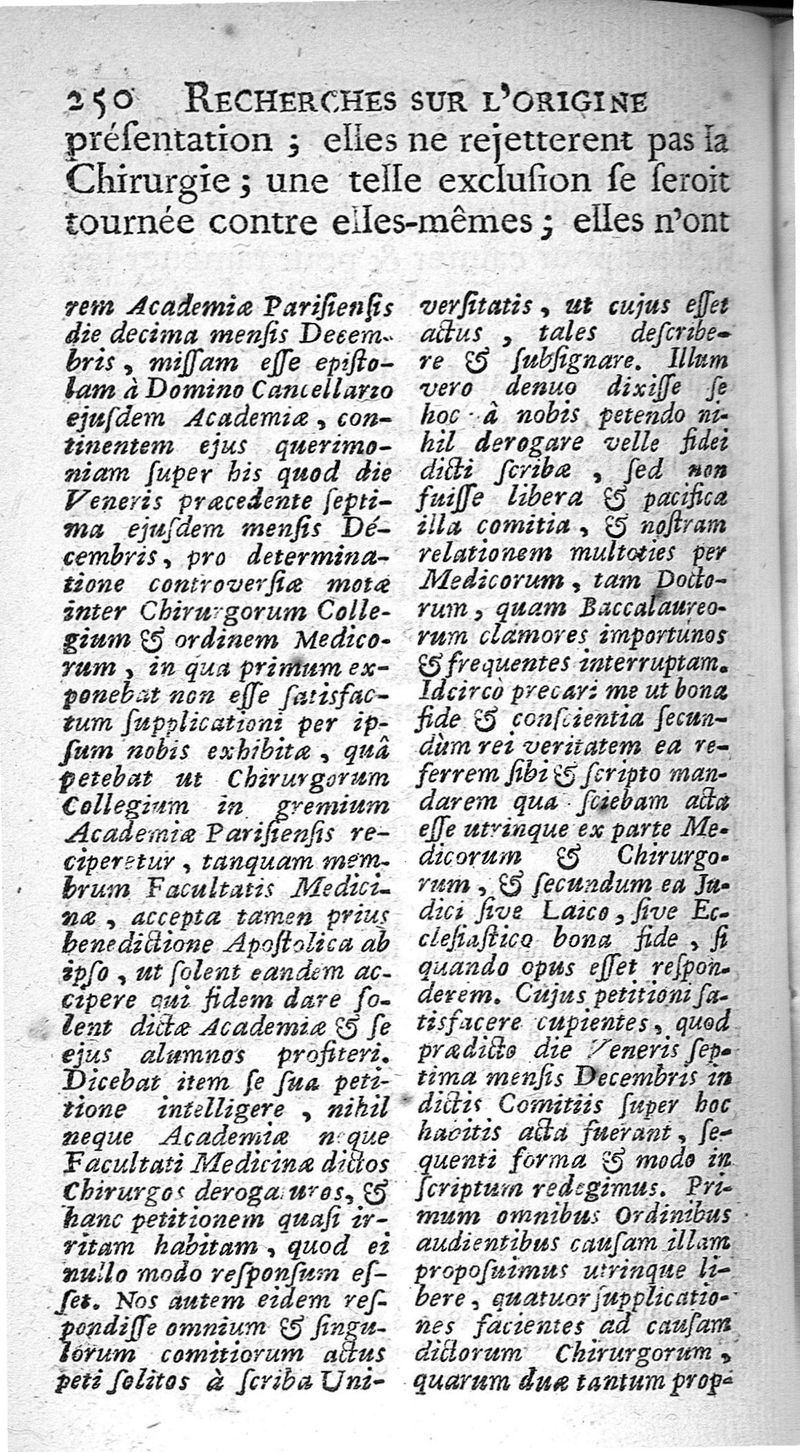 250 RECHERCHES SUR L'ORIGINE
préſentation ; elles ne rejetterent pas la
Chirurgie ; une telle excluſion ſe ſeroit
tournée contre elles-mêmes ; elles n'ont
rem Academiæ Pariſienſis
die decima menſis Decem-
bris , miſſam eſſe epiſto-
lam à Domino Cancellario
ejuſdem Academiæ , con-
tinentem ejus querimo-
niam ſuper his quod die
Veneris præcedente ſepti-
ma ejuſdem menſis Dé-
cembris, pro determina-
tione controverſiæ motæ
inter Chirurgorum Colle-
gium & ordinem Medico-
rum , in qua primum ex-
ponebat non eſſe ſatisfac-
tum ſupplicationi per ip-
ſum nobis exhibitæ , quâ
petebat ut Chirurgorum
Collegium in gremium
Academiæ Pariſienſis re-
ciperetur , tanquam mem-
brum Facultatis Medici-
næ , accepta tamen prius
benedictione Apoſtolica ab
ipſo , ut ſolent eandem ac-
cipere qui fidem dare ſo-
lent dictæ Academiæ & ſe
ejus alumnos profiteri.
Dicebat item ſe ſua peti-
tione intelligere , nihil
neque Academiæ neque
Facultati Medicinæ dictos
Chirurgos derogaturos, &
hanc petitionem quaſi ir-
ritam habitam , quod ei
nullo modo reſponſum eſ-
ſet. Nos autem eidem reſ-
pondiſſe omnium & ſingu-
lorum comitiorum actus
peti ſolitos à ſcriba Uni-
verſitatis , ut cujus eſſet
actus , tales deſcribe-
re & ſubſignare. Illum
vero denuo dixiſſe ſe
hoc à nobis petendo ni-
hil derogare velle fidei
dicti ſcribæ , ſed non
fuiſſe libera & pacifica
illa comitia , & noſtram
relationem multoties per
Medicorum , tam Docto-
rum , quam Baccalaureo-
rum clamores importunos
& frequentes interruptam.
Idcircò precari me ut bona
fide & conſcientia ſecun-
dùm rei veritatem ea re-
ferrem ſibi & ſcripto man-
darem qua ſciebam acta
eſſe utrinque ex parte Me-
dicorum & Chirurgo-
rum , & ſecundum ea Ju-
dici ſive Laico , ſive Ec-
cleſiaſtico bona fide , ſi
quando opus eſſet reſpon-
derem. Cujus petitioni ſa-
tisfacere cupientes, quod
prædicto die Veneris ſep-
tima menſis Decembris in
dictis Comitiis ſuper hoc
habitis acta fuerant , ſe-
quenti forma & modo in
ſcriptum redegimus. Pri-
mum omnibus Ordinibus
audientibus cauſam illam
propoſuimus utrinque li-
bere , quatuor ſupplicatio-
nes facientes ad cauſam
dictorum Chirurgorum ,
quarum duæ tantum prop-